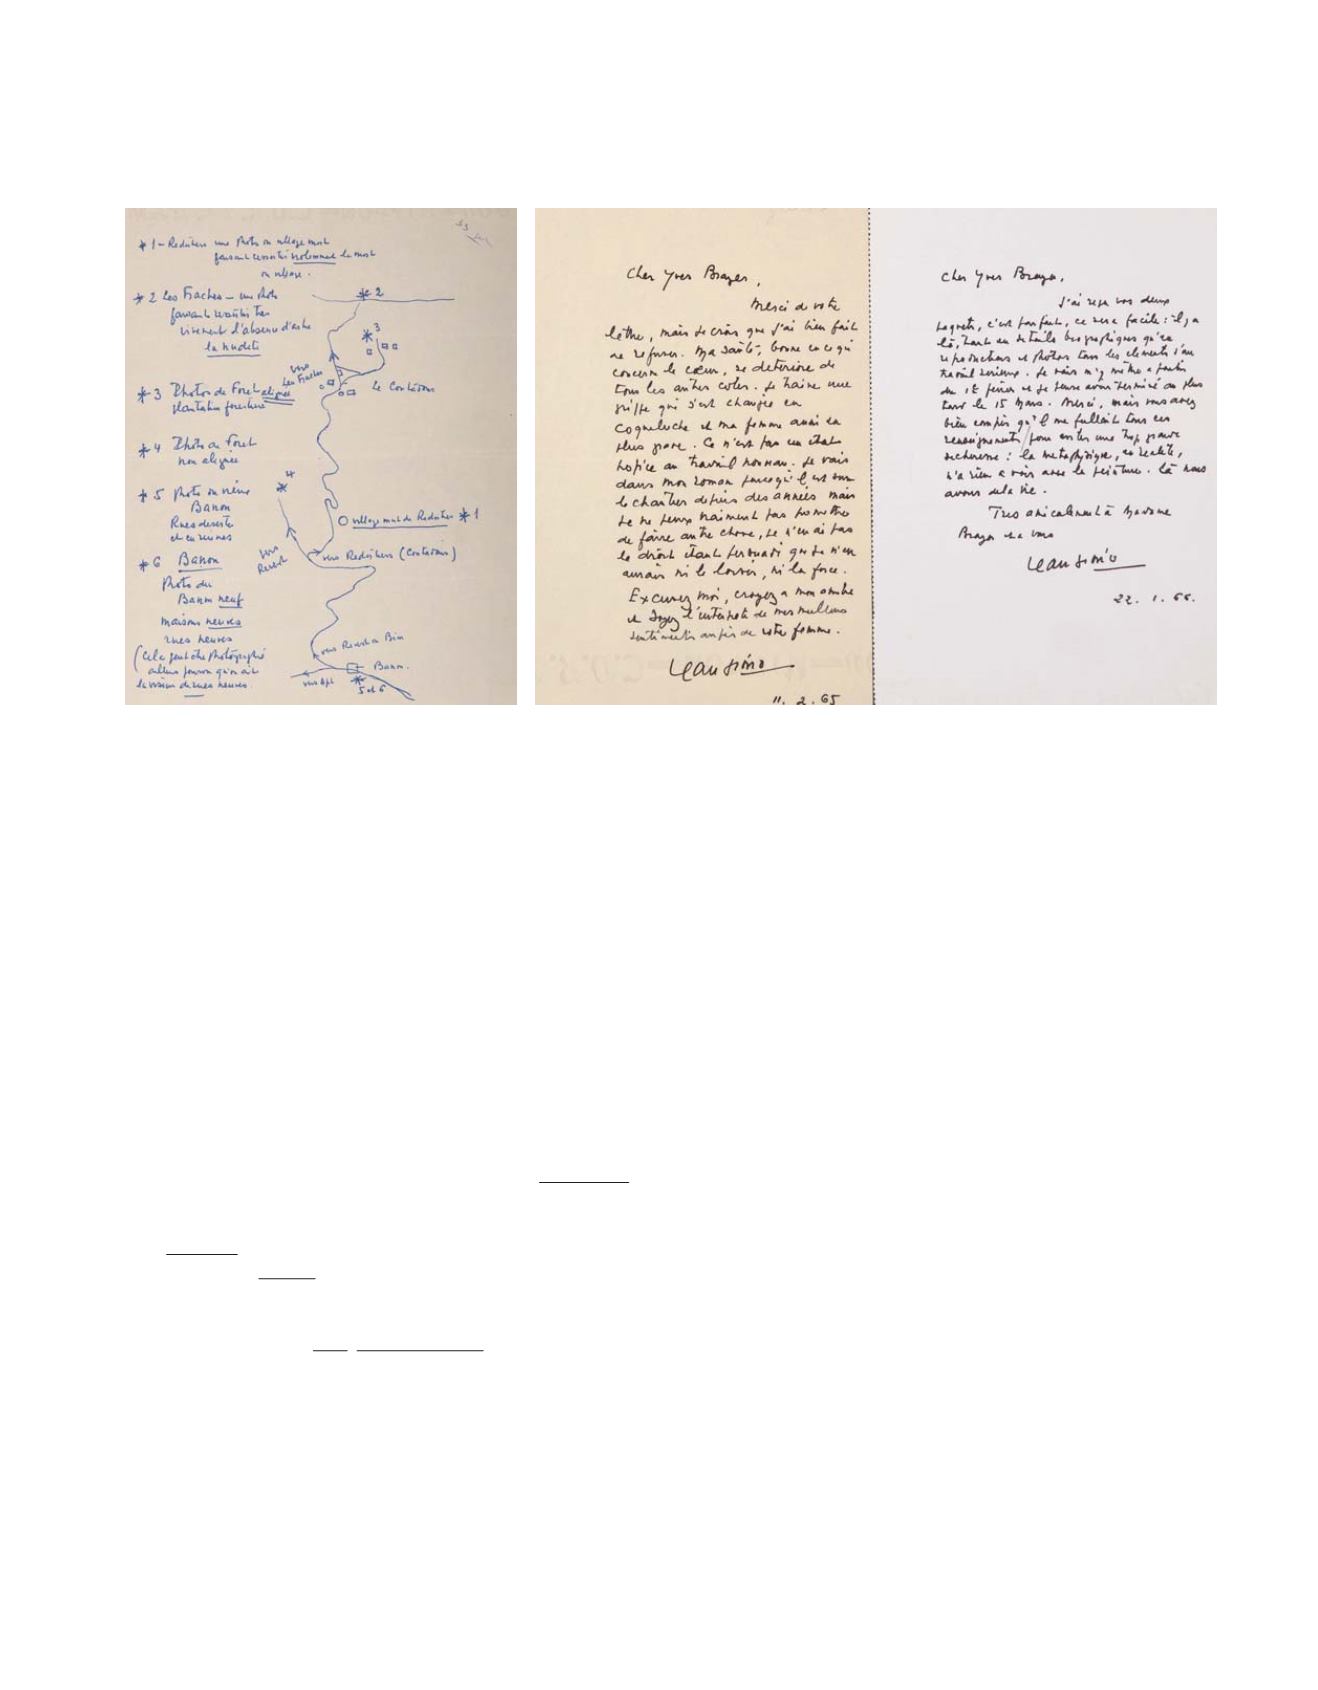 * 1 - Redortiers une photo du village mort
faisant ressortir violemment la mort
du village.
* 2 Les Fraches - une photo
faisant ressortir très
vivement l'absence d'arbre
la nudité
* 3 Photos de Foret alignée
plantation forestière
* 4 Photo de Foret
non alignée
* 5 photo du vieux
Banon
Rues desertes
et en ruines
* 6 Banon
Photo du
Banon neuf
maisons neuves
rues neuves
(Cela peut être photographié
ailleurs pourvu qu'on ait
la vision de rues neuves.
* 2
* 3
vers
Les Fraches
Le Contadour
* 4
O village mort de Redortiers * 1
vers
Revest
vers Redortiers (Contadour)
vers Revest du Bion
Banon.
vers Apt
*
5 et 6
Cher Yves Brayer,
Merci de votre
lettre, mais je crois que j'ai bien fait
de refuser. Ma santé, bonne en ce qui
concerne le cœur, se deteriore de
tous les autres cotés. Je traine une
grippe qui s'est changée en
coqueluche et ma femme aussi en
plus grave. Ce n'est pas un état
propice au travail nouveau. Je vais
dans mon roman parce qu'il est sur
le chantier depuis des années mais
je ne peux vraiment pas promettre
de faire autre chose, je n'en ai pas
le droit étant persuadé que je n'en
aurais ni le loisir, ni la force.
Excusez moi, croyez a mon
et soyez l'interprete de mes meilleurs
sentiments auprès de votre femme.
Jean Giono
11. 2. 65
Cher Yves Brayer,
J'ai reçu vos deux
paquets, c'est parfait, ce sera facile : il y a
là, tant en details biographiques qu'en
reproductions et photos tous les elements d'un
travail serieux. Je vais m'y mettre a partir
du 1er février et je pense avoir terminé au plus
tard le 15 Mars. Merci, mais vous avez
bien compris qu'il me fallait tous ces
renseignements pour eviter une trop grande
secheresse : la metaphysique, en realité,
n'a rien a voir avec la peinture. Là nous
avons de la vie.
Tres amicalement à Madame
Brayer et a vous
Jean Giono
22. 1. 66.